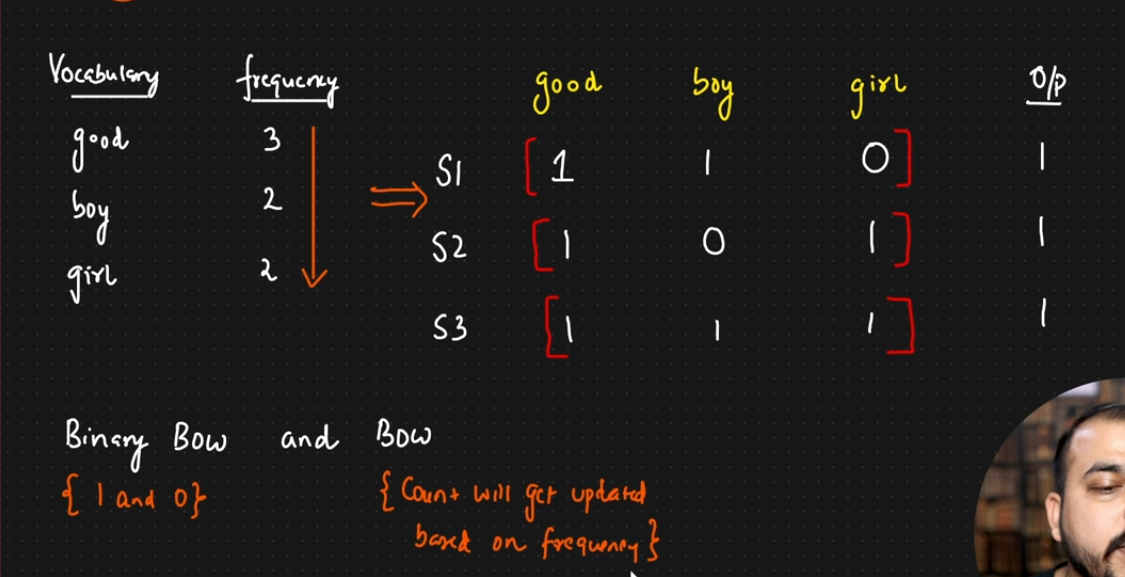 Vocabulary frequency good boy girl O/P
good 3
boy 2
girl 2
S1 [1 1 0] 1
S2 [1 0 1] 1
S3 [1 1 1] 1
Binary BOW and BOW
{ 1 and 0} { Count will get updated
based on frequency}